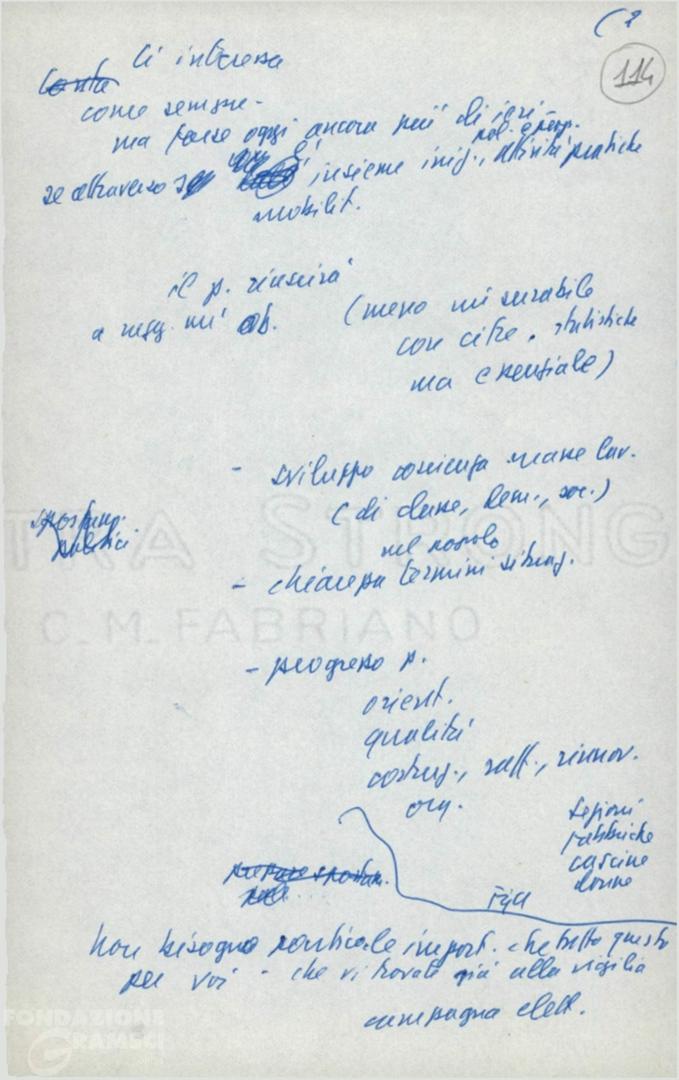 (2
114
Ci interessa
Conta
come sempre -
ma forse oggi ancora più di ieri -
pol. e prop.
se attraverso insieme iniz., attività pratiche
mobilit.
il p. riuscirà
a ragg. ob.
(meno misurabile
con cifre, statistiche
ma essenziale)
- sviluppo coscienza masse lav.
(di classe, dem., soc.)
spostam.
politici
nel popolo
- chiarezza termini situaz.
- progresso p.
orient.
qualità
costruz., raff., rinnov.
org.
Sezioni
fabbriche
cascine
donne
FGCI
Non bisogno sottolineare import. che tutto questo
per voi - che vi trovate già alla vigilia
campagna elett.
TRA STRONG
C.M. FABRIANO
FONDAZIONE
GRAMSCI